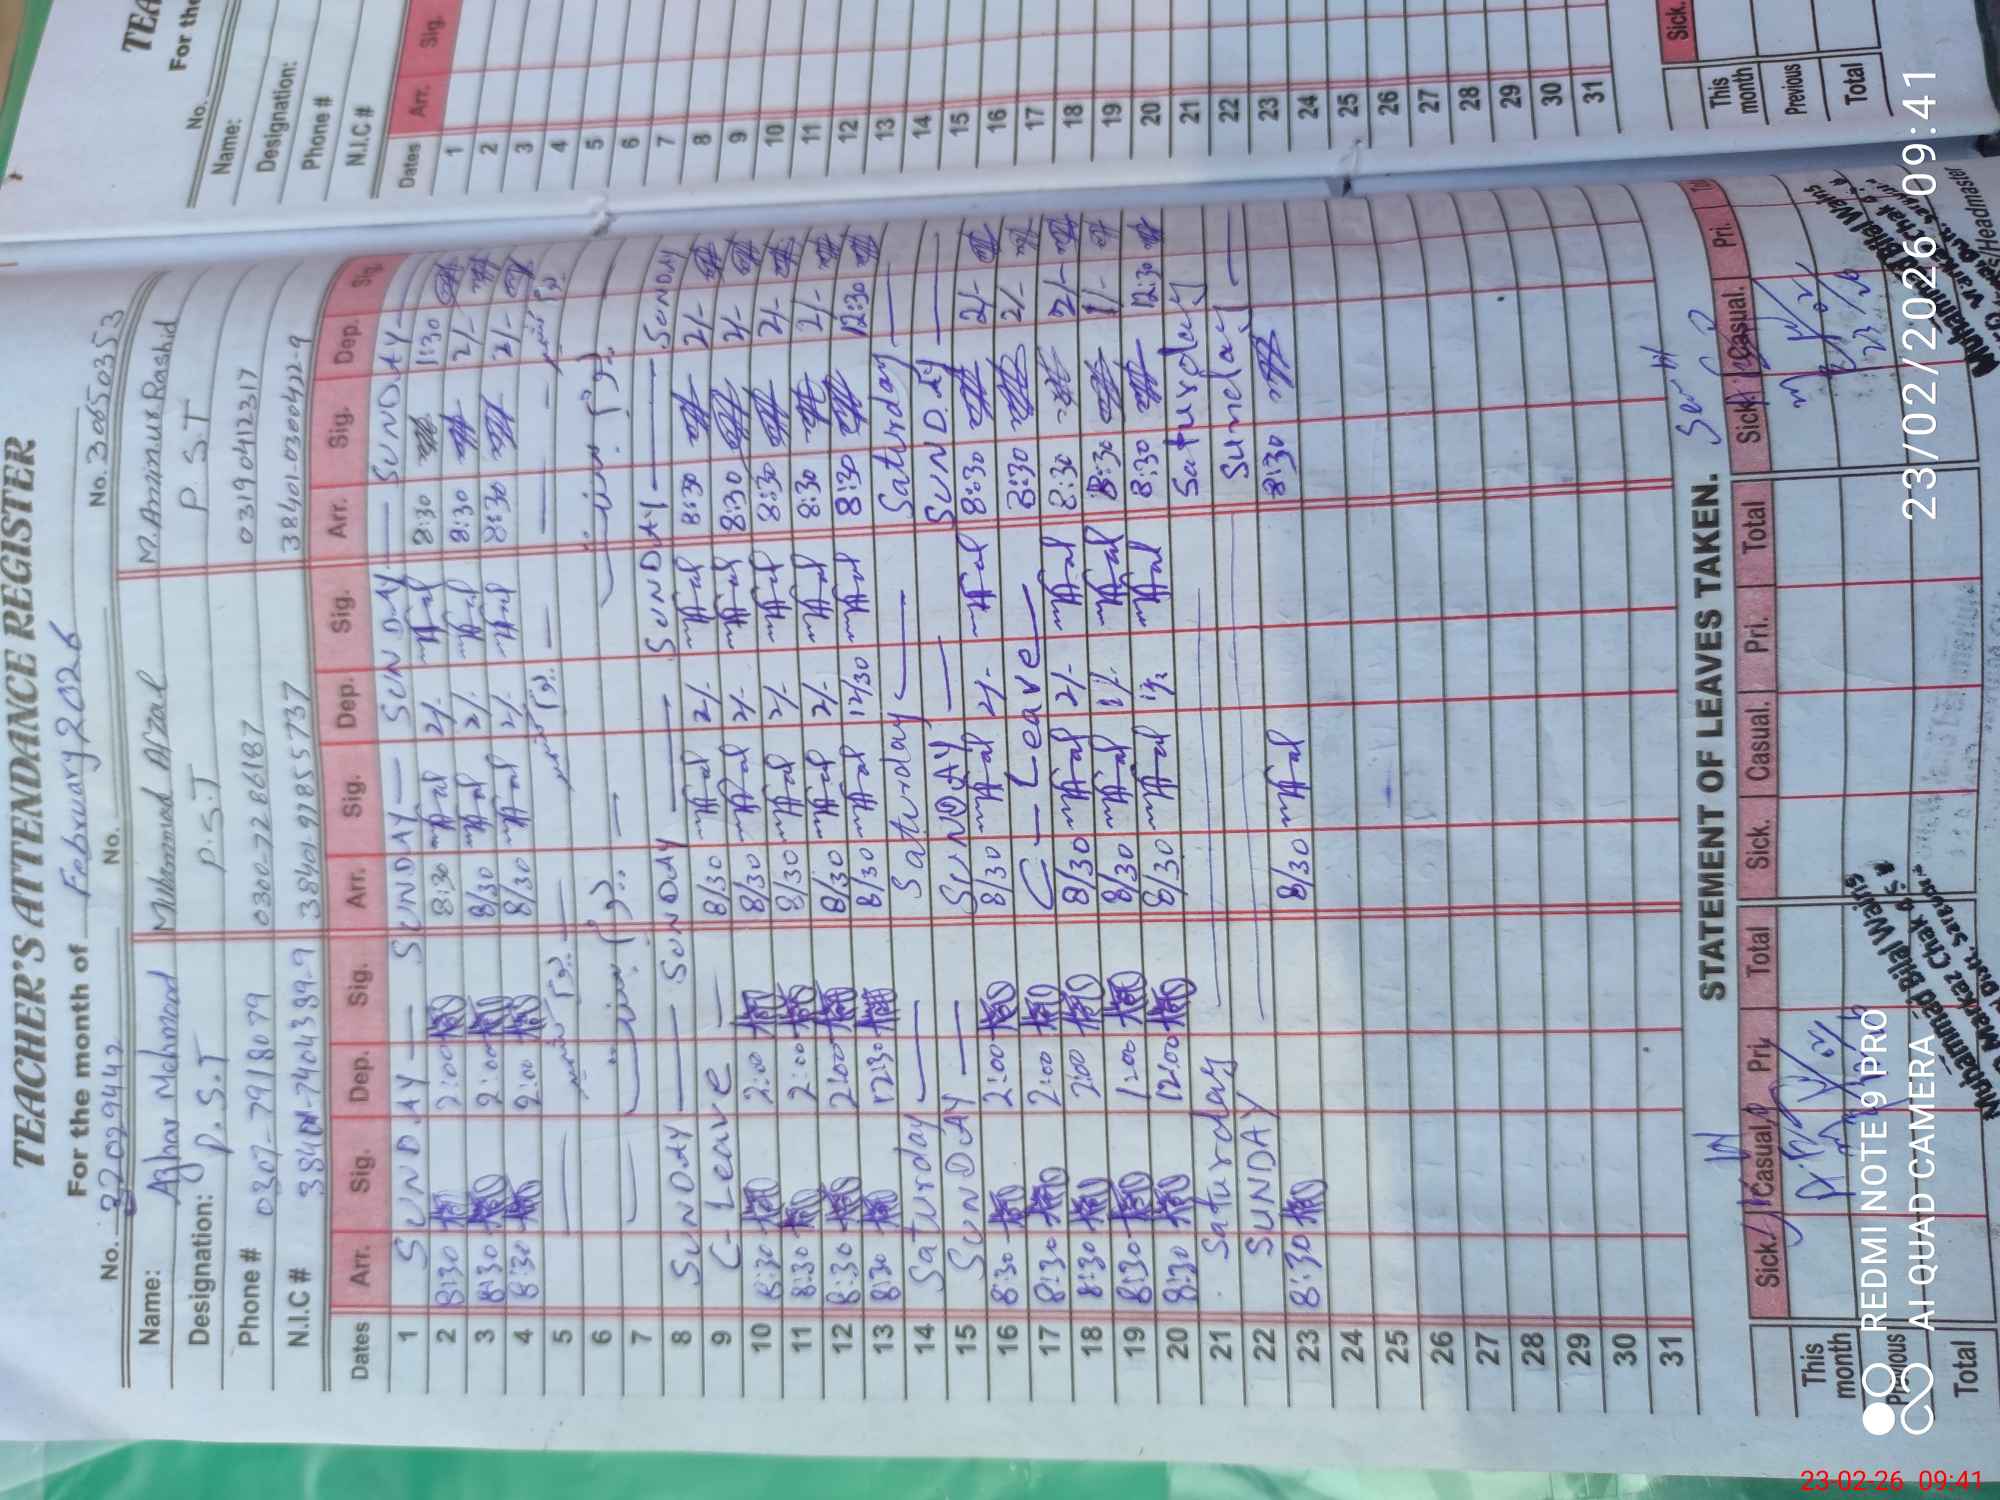 TEACHER'S ATTENDANCE REGISTER
For the month of February 2026
No. 32029442 No. No. 30650353
Name: Azhar Mehmood Muhammad Afzal M. Aminur Rashid
Designation: P.S.T P.S.T P.S.T
Phone # 0307-7918079 0300-7286187 03190412317
N.I.C # 38401-0300422-9
Dates Arr. Sig. Dep. Sig. Arr. Sig. Dep. Sig. Arr. Sig. Dep. Sig.
1 SUNDAY SUNDAY SUNDAY SUNDAY
2 8:30 2:00 8:30 2/- 8:30 1:30
3 8:30 2:00 8/30 2/- 8:30 2/-
4 8:30 2:00 8/30 2/- 8:30 2/-
5
6
7
8 SUNDAY SUNDAY SUNDAY SUNDAY SUNDAY
9 C-Leave 8/30 2/- 8:30 2/-
10 8:30 2:00 8/30 2/- 8:30 2/-
11 8:30 2:00 8/30 2/- 8:30 2/-
12 8:30 2:00 8/30 2/- 8:30 2/-
13 8:30 12:30 8/30 12/30 8:30 12:30
14 Saturday Saturday Saturday
15 SUNDAY SUNDAY SUNDAY
16 8:30 2:00 8/30 2/- 8:30 2/-
17 8:30 2:00 C-Leave 8:30 2/-
18 8:30 2:00 8/30 2/- 8:30 2/-
19 8:30 1:00 8/30 1/- 8:30 1/-
20 8:30 12:00 8/30 8:30 12:30
21 Saturday Saturday
22 SUNDAY Sunday
23 8:30 8/30 8:30
24
25
26
27
28
29
30
31
STATEMENT OF LEAVES TAKEN.
Sick. Casual. Pri. Total Sick. Casual. Pri. Total Sick. Casual. Pri.
This month
Previous
Total
Muhammad Bilal Wains
Markaz Chak
Muhammad Bilal Wains
Headmaster
No.
Name:
Designation:
Phone #
N.I.C #
Dates Arr. Sig.
1
2
3
4
5
6
7
8
9
10
11
12
13
14
15
16
17
18
19
20
21
22
23
24
25
26
27
28
29
30
31
Sick.
This month
Previous
Total
REDMI NOTE 9 PRO
AI QUAD CAMERA
23/02/2026 09:41
23-02-26 09:41